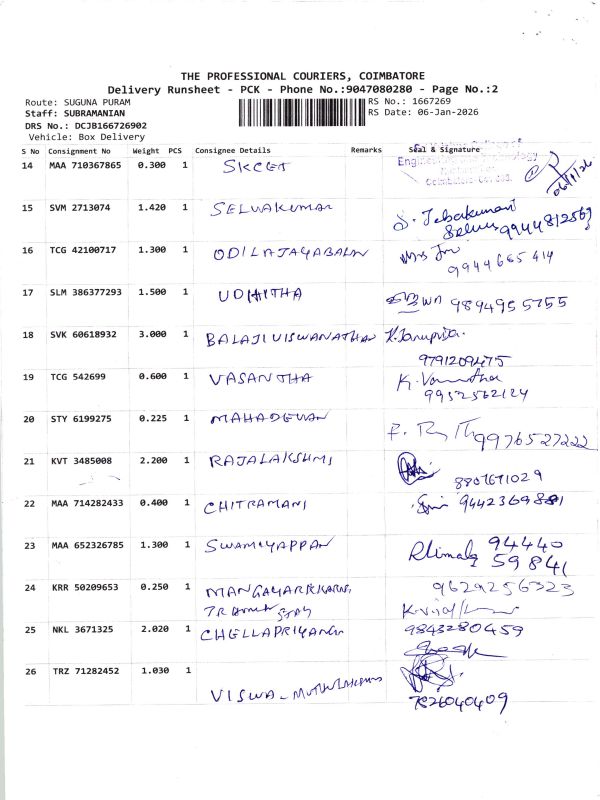 THE PROFESSIONAL COURIERS, COIMBATORE
Delivery Runsheet - PCK - Phone No.:9047080280 - Page No.:2
Route: SUGUNA PURAM
RS No.: 1667269
Staff: SUBRAMANIAN
RS Date: 06-Jan-2026
DRS No.: DCJB166726902
Vehicle: Box Delivery
S No Consignment No Weight PCS Consignee Details Remarks Seal & Signature
14 MAA 710367865 0.300 1 SKCET
Engineering and Technology
Coimbatore
06/1/26
15 SVM 2713074 1.420 1 SELVAKUMAR
9944812563
16 TCG 42100717 1.300 1 ODILAJAYABALAN
9944665414
17 SLM 386377293 1.500 1 UDHITHA 9894955755
18 SVK 60618932 3.000 1 BALAJIVISWANATHAN
9791209475
19 TCG 542699 0.600 1 VASANTHA
9952562124
20 STY 6199275 0.225 1 MAHADEVAN
9976527222
21 KVT 3485008 2.200 1 RAJALAKSHMI
8807671029
22 MAA 714282433 0.400 1 CHITRAMANI 9442369881
23 MAA 652326785 1.300 1 SWAMIYAPPAN 94440
59841
24 KRR 50209653 0.250 1 MANGAYARKKARASI 9629256323
25 NKL 3671325 2.020 1 CHELLAPRIYANGA 9843280459
26 TRZ 71282452 1.030 1
VISWA-
7826040409